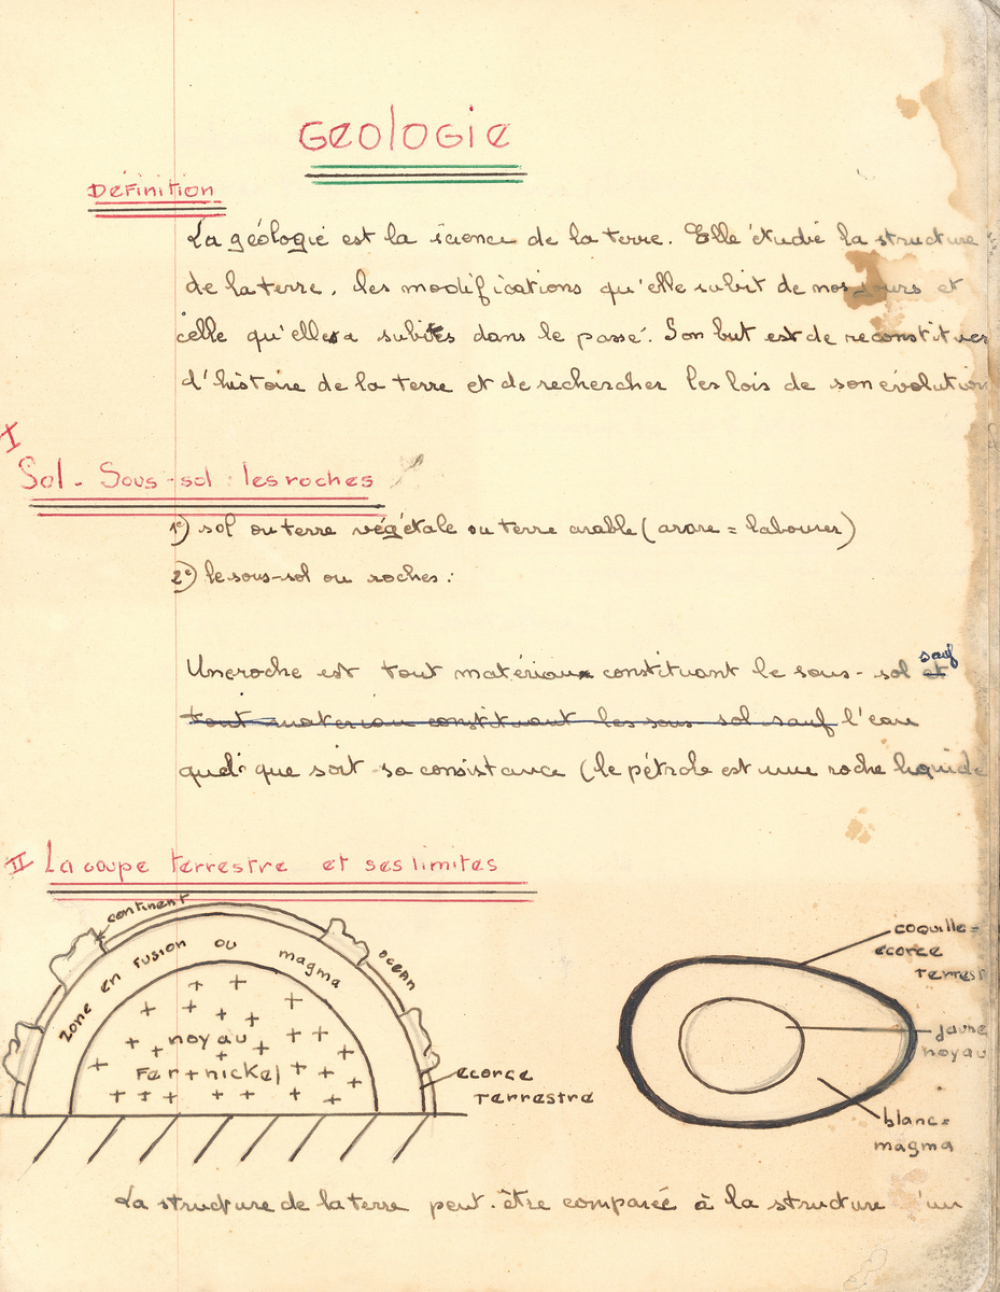 Geologie
Définition
La géologie est la science de la terre. Elle étudie la structure
de la terre, les modifications qu'elle subit de nos jours et
celle qu'elle a subites dans le passé. Son but est de reconstituer
d'histoire de la terre et de rechercher les lois de son évolution
I
Sol - Sous-sol : les roches
1e) sol ou terre végétale ou terre arable (arare = labourer)
2e) le sous-sol ou roches :
sauf
Une roche est tout matériaux constituant le sous-sol et
tout materiau constituant les sous sol sauf l'eau
quelque soit sa consistance (le pétrole est une roche liquide
II La coupe terrestre et ses limites
continent
ocean
zone en fusion ou magma
noyau
Fer + nickel
ecorce
terrestre
coquille =
ecorce
terrest
jaune
noyau
blanc =
magma
La structure de la terre peut-être comparée à la structure un